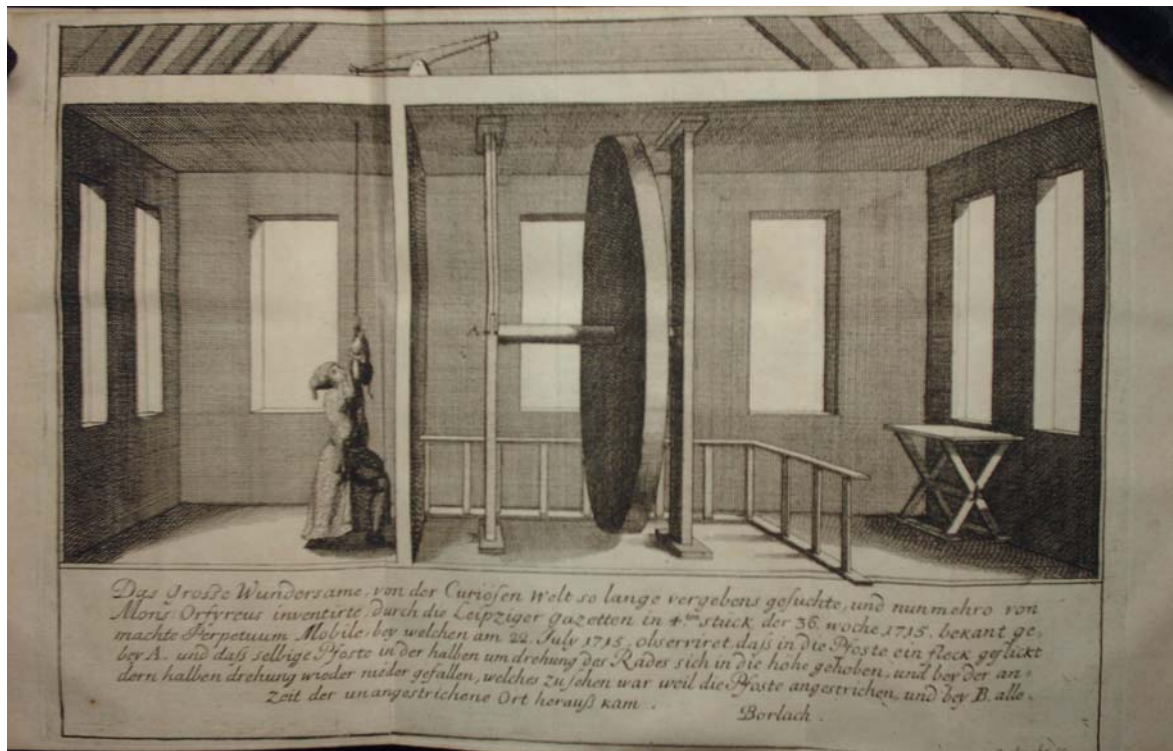 A.
Das Grosse Wundersame, von der Curiösen Welt so lange vergebens gesuchte, und nunmehro von
Mons. Orfyreus inventirte, durch die Leipziger gazetten in 4.ten stück der 36. woche 1715. bekant ge,
machte Perpetuum Mobile, bey welchen am 22. July 1715, observiret, daſs in die Pfoste ein fleck geflickt
bey A. und daſs selbige Pfoste in der halben um drehung des Rades sich in die höhe gehoben, und bey der an,
dern halben drehung wieder nieder gefallen, welches zu sehen war weil die Pfoste angestrichen, und bey B. alle,
Zeit der unangestrichene Ort herauß kam.
Borlach.